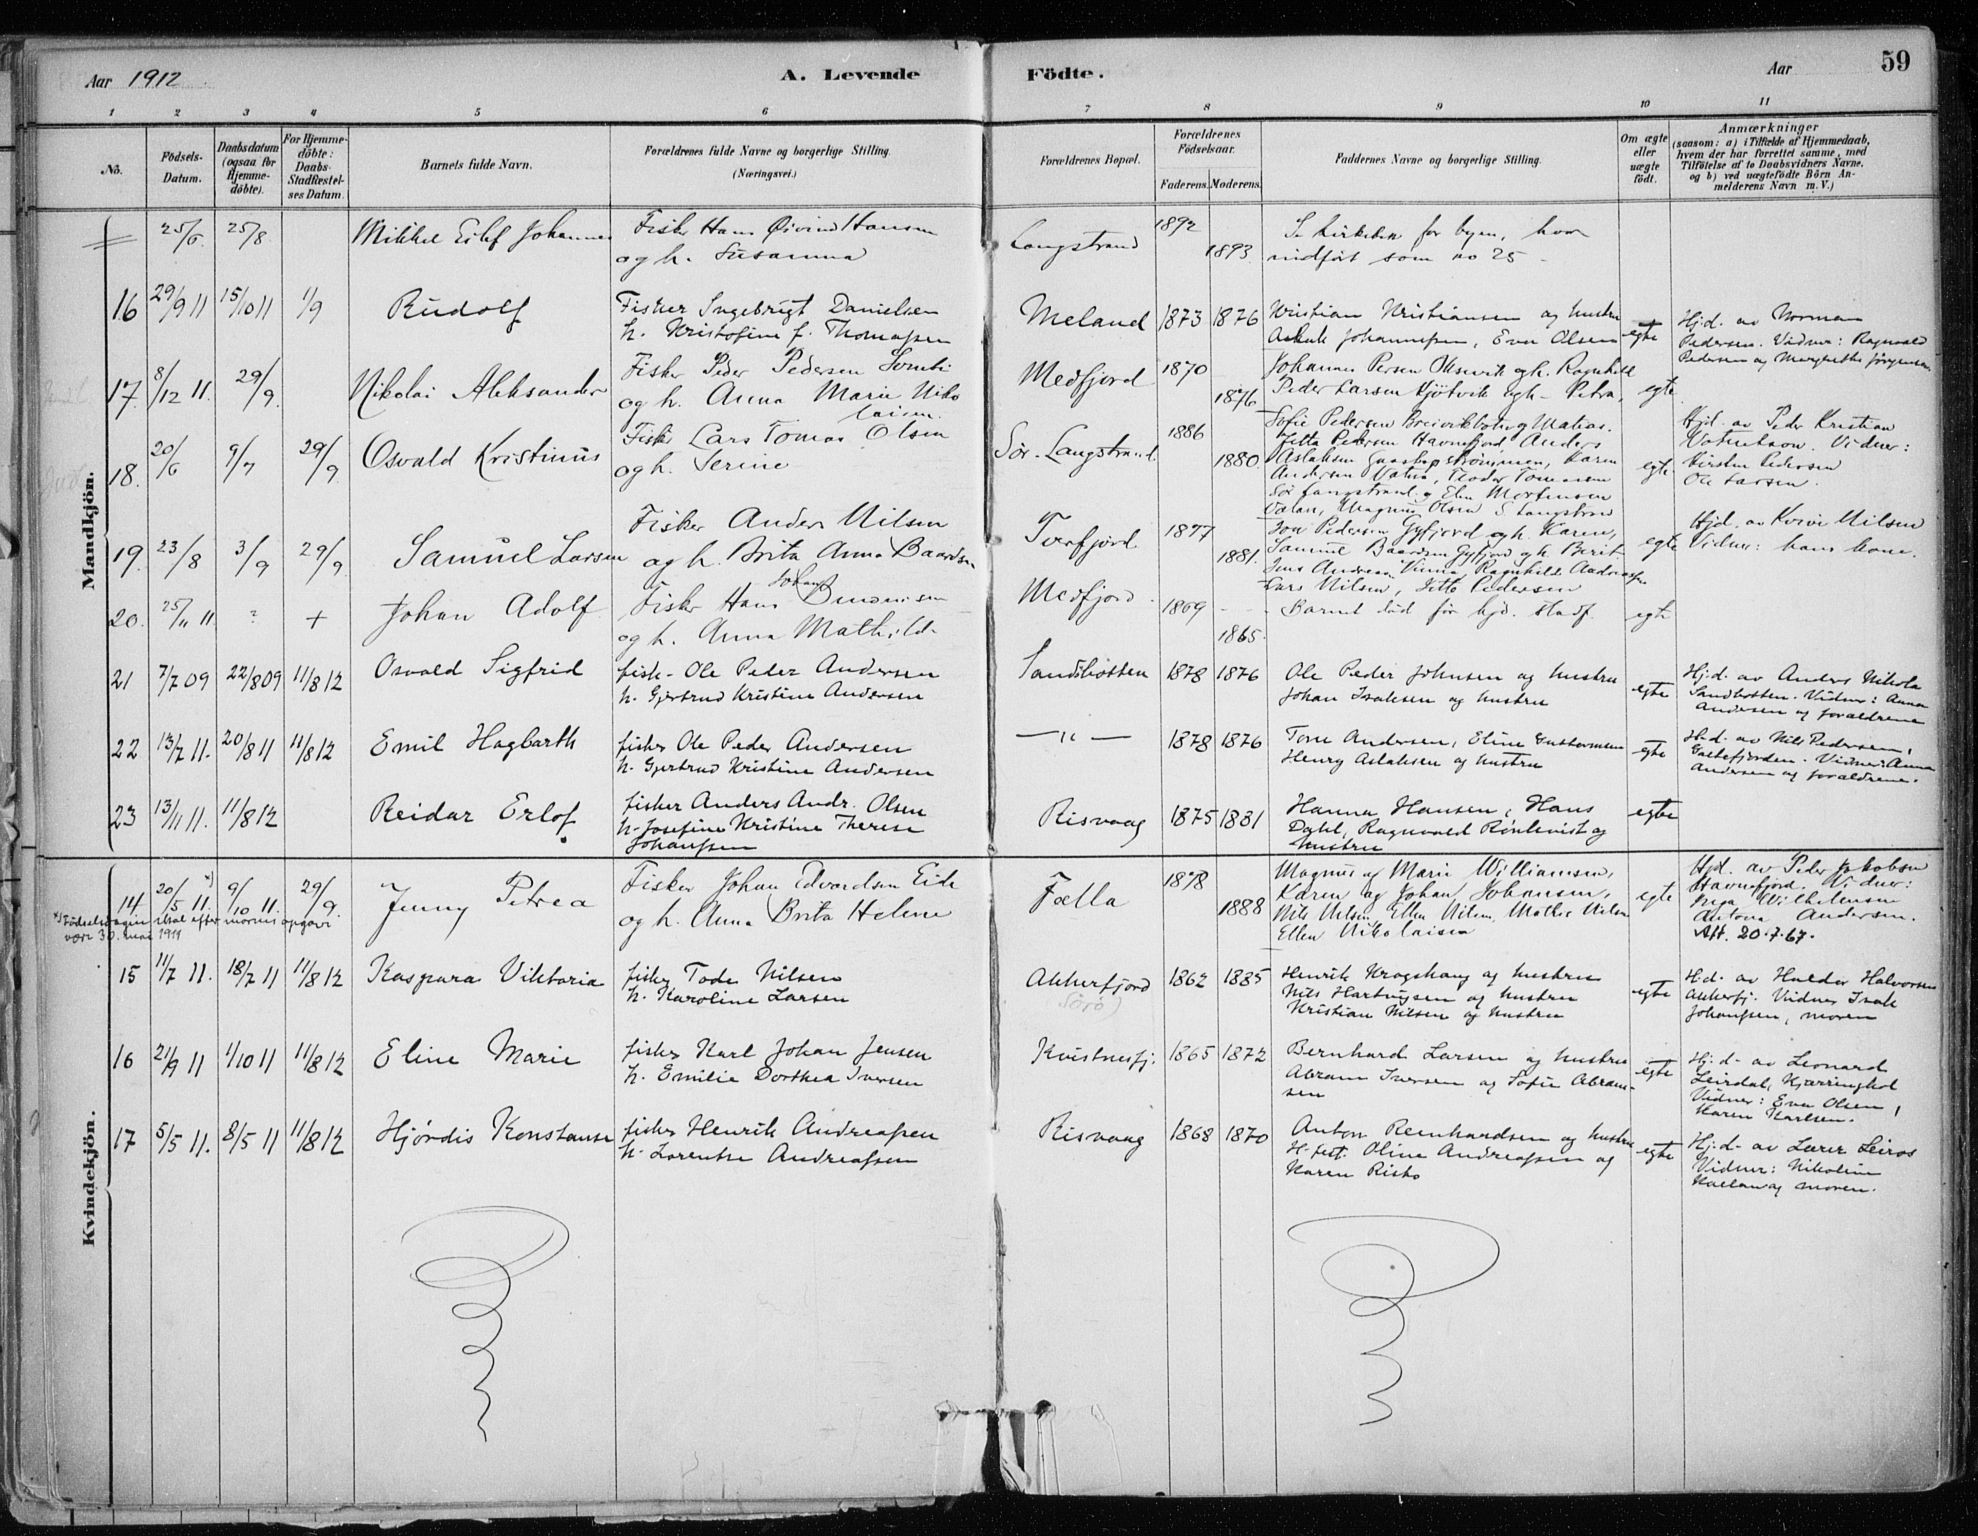 Aar 1912
A. Levende
Födte.
Aar
59
1 2 3 4 5 6 7 8 9 10 11
No.
Födsels-
Datum.
Daabsdatum
(ogsaa for
Hjemme-
döbte).
For Hjemme-
döbte:
Daabs-
Stadfestel-
ses Datum.
Barnets fulde Navn.
Forældrenes fulde Navne og borgerlige Stilling.
(Næringsvei.)
Forældrenes Bopæl.
Forældrenes
Födselsaar.
Faderens. Moderens.
Faddernes Navne og borgerlige Stilling.
Om ægte
eller
uægte
födt.
Anmærkninger
(saasom: a) i Tilfælde af Hjemmedaab,
hvem der har forrettet samme, med
Tilföielse af to Daabsvidners Navne,
og b) ved uægtefödte Börn An-
melderens Navn m. V.)
Mandkjön.
25/6 25/8 Mikkel Eilef Johannes
Fisker Hans Øivind Hansen
og h. Susanna
Langstrand 1892 1893
Se kirkebok for byen, hvor
indført som no 25
16 29/9 11 15/10 11 1/9 Rudolf
Fisker Ingebrigt Danielsen
h. Kristofine f. Thomassen
Meland 1873 1876
Kristian Kristiansen og hustru
Johannessen, Eva Olsen
egte
Hj.d. av Norman
Pedersen. Vidner: Ragnvald
Pedersen og Margrethe Jørgensen
17. 8/12 11. 29/9. Nikolai Aleksander
Fisker Peder Pedersen
og h. Anna Marie Niko
laisen.
Medfjord 1870 1876
Johannes Persen Oksvik og h. Ragnhild
Peder Larsen Kjøtvik og h. Petra,
egte.
18. 20/6 9/7 29/9. Osvald Kristinus
Fisker Lars Tomas Olsen
og h. Serine
Sør-Langstrand. 1886 1880.
Sofie Pedersen Breivikbotn og Matias.
Jetta Pedersen Havnefjord, Anders
Aslaksen Gaashopstrømmen, Karen
Andersen Vatna, Teodor Tomassen
Sør Langstrand og Elen Mortensen
Magnus Olsen S Langstrand
egte.
Hjd. av Peder Kristian
Vidner:
Kirsten Pedersen
Ole Larsen.
19. 23/8 3/9 29/9. Samuel Larsen
Fisker Anders Nilsen
og h. Brita Anna Baardsen
Tverfjord. 1877 1881.
Jon Pedersen Gyfjord og h. Karen,
Samuel Baardsen Gyfjord og h. Berit
Jens Andreas Vinna, Ragnhild Andreassen
Lars Nilsen, Jetto Pedersen
egte
Hjd. av Nilsen
Vidner: hans kone.
20. 25/11 11 ? + Johan Adolf
Fisker Hans Johan Simonsen
og h. Anna Mathilde
Medfjord. 1869 1865.
Barnet død før hjd. stadf.
egte
21 7/7 09 22/8 09 11/8 12 Osvald Sigfrid
fisker Ole Peder Andersen
h. Gjertrud Kristine Andersen
Sandbotten 1878 1876
Ole Peder Johnsen og hustru
Johan Isaksen og hustru
egte
Hj.d. av Anders Nikola
Sandbotten. Vidner: Anna
Andersen og forældrene
22 13/7 11. 20/8 11 11/8 12 Emil Hagbarth
fisker Ole Peder Andersen
h. Gjertrud Kristine Andersen
— " — 1878 1876
Tone Andersen, Eline Gustavsen
Henry Aslaksen og hustru
egte
H.d. av Nils Pedersen,
Galtefjorden. Vidner: Anna
Andersen og forældrene.
23 13/11 11. 11/8 12 Reidar Erlof
fisker Anders Andr. Olsen
h. Josefine Kristine Therese
Johanssen
Risvaag 1875 1881
Hanna Hansen, Hans
Dahl, Ragnvald Rönkvist og
hustru
egte
Kvindekjön.
14 20/5 11. *) 9/10 11 29/9. Jenny Petrea
*) Födselsdagen skal efter morens opgave
være 30. mai 1911
Fisker Johan Edvardsen Eide
og h. Anna Brita Helene
Fœlla 1878 1888
Magnus og Marie Williamsen,
Karen og Johan Johansen,
Nils Nilsen, Ellen Nilsen, Mathis Nilsen
Ellen Nikolaisen
egte
Hjd. av Peder Jakobsen
Havnefjord. Vidner:
Inga Wilhelmsen
Antona Andersen.
Att. 20.7.67.
15 11/7 11. 18/7 11 11/8 12 Kaspara Viktoria
fisker Tode Nilsen
h. Karoline Larsen
Akkerfjord
Sörö)
1862 1885
Henrik Kragshaug og hustru
Nils Hartvigsen og hustru
Kristian Nilsen og hustru
egte
H.d. av Haldor Halvorsen
Akkerfj. Vidner Isak
Johanssen, moren
16 21/9 11 1/10 11 11/8 12 Eline Marie
fisker Karl Johan Jensen
h. Emilie Dorthea Iversen
Kvitnesfj. 1865 1872
Bernhard Larsen og hustru
Abram Iversen og Sofie Abram-
sen
egte
Hj.d. av Leonard
Leirdal, Kjærringhol
Vidner: Eva Olsen,
Karen Karlsen.
17 5/5 11. 8/5 11 11/8 12 Hjördis Konstanse
fisker Henrik Andreassen
h. Lorentse Andreassen
Risvaag 1868 1870
Anton Reinhardsen og hustru
H.fest. Oline Andreassen og
Karen Risko
egte
Hj.d. av Lærer Leiros
Vidner: Nikoline
og moren.